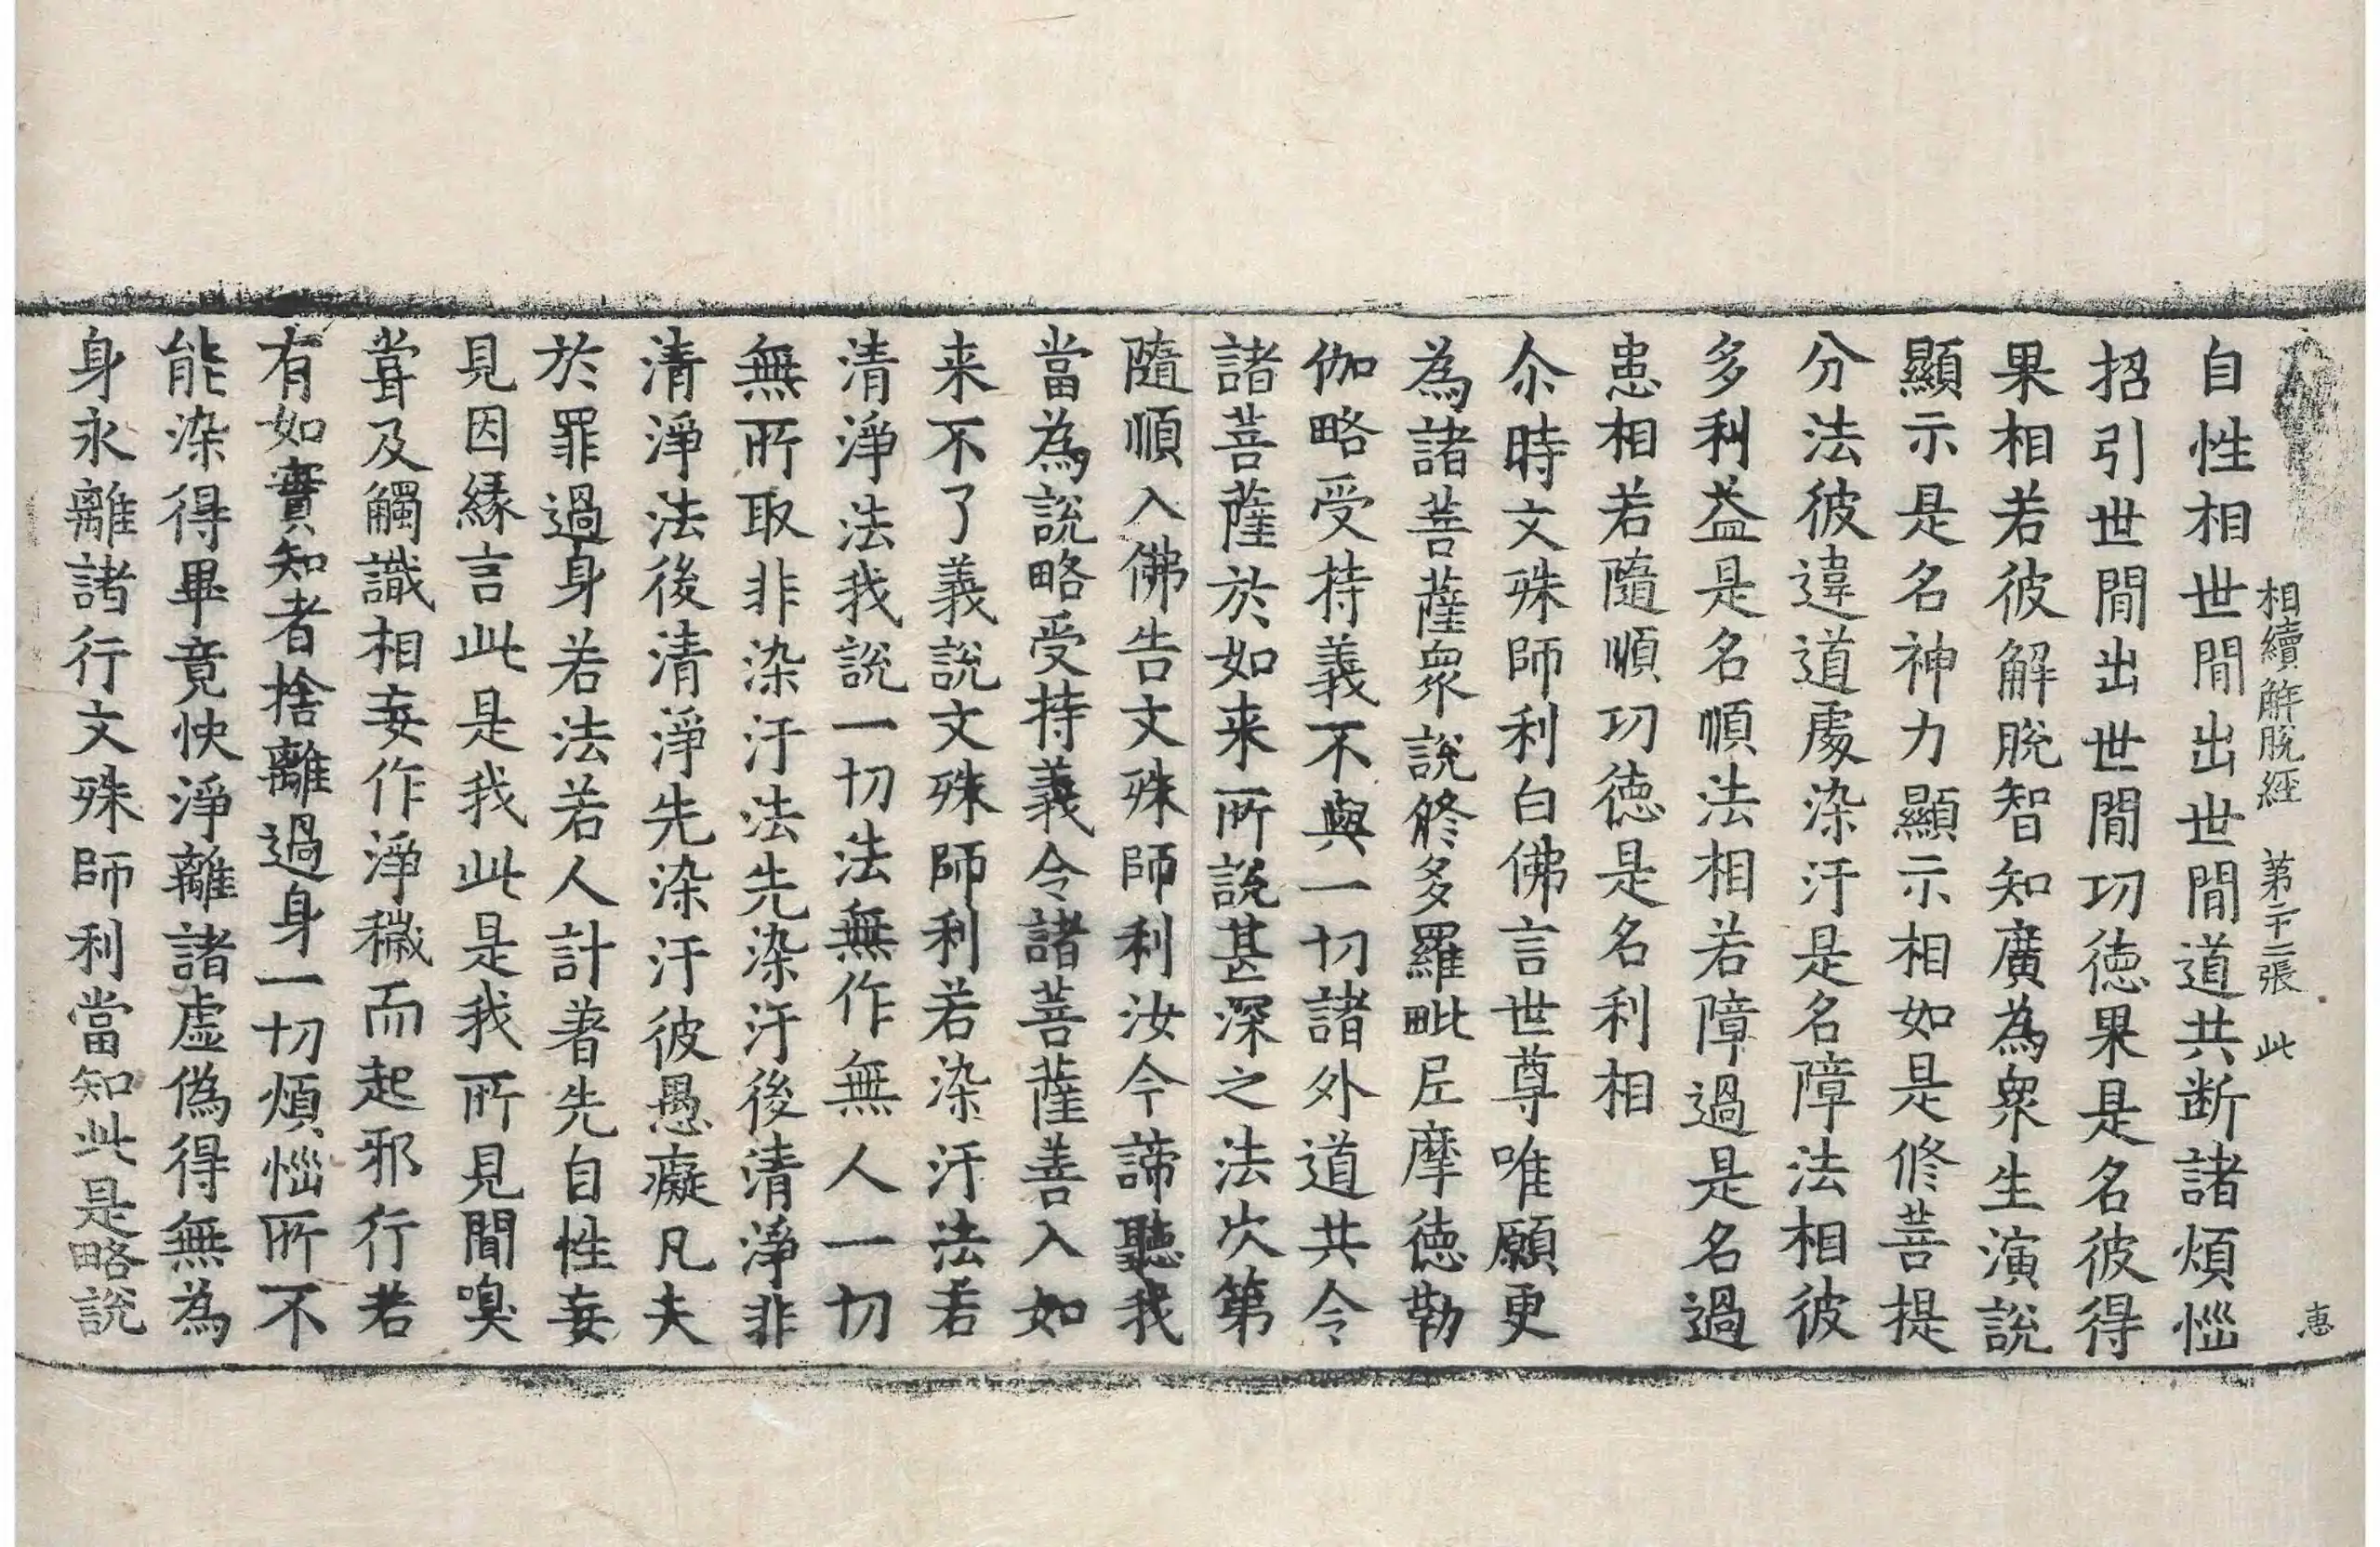 相續解脫經 第二十二張 此 惠
自性相世閒出世閒道共断諸煩惱
招引世閒出世閒㓛徳果是名彼得
果相若彼解脫智知廣為衆生演說
顯示是名神力顯示相如是修菩提
分法彼違道處染汙是名障法相彼
多利益是名順法相若障過是名過
患相若隨順㓛徳是名利相
尒時文殊師利白佛言世尊唯願更
為諸菩薩衆說修多羅毗尼摩徳勒
伽略受持義不與一切諸外道共令
諸菩薩於如来所說甚深之法次第
隨順入佛告文殊師利汝今諦聽我
當為說略受持義令諸菩薩善入如
来不了義說文殊師利若染汙法若
清淨法我說一切法無作無人一切
無所取非染汙法先染汙後清淨非
清淨法後清淨先染汙彼愚癡凡夫
於罪過身若法若人計著先自性妄
見因緣言此是我此是我所見聞嗅
甞及觸識相妄作淨穢而起邪行若
有如實知者捨離過身一切煩惱所不
能染得畢竟快淨離諸虛偽得無為
身永離諸行文殊師利當知此是略說